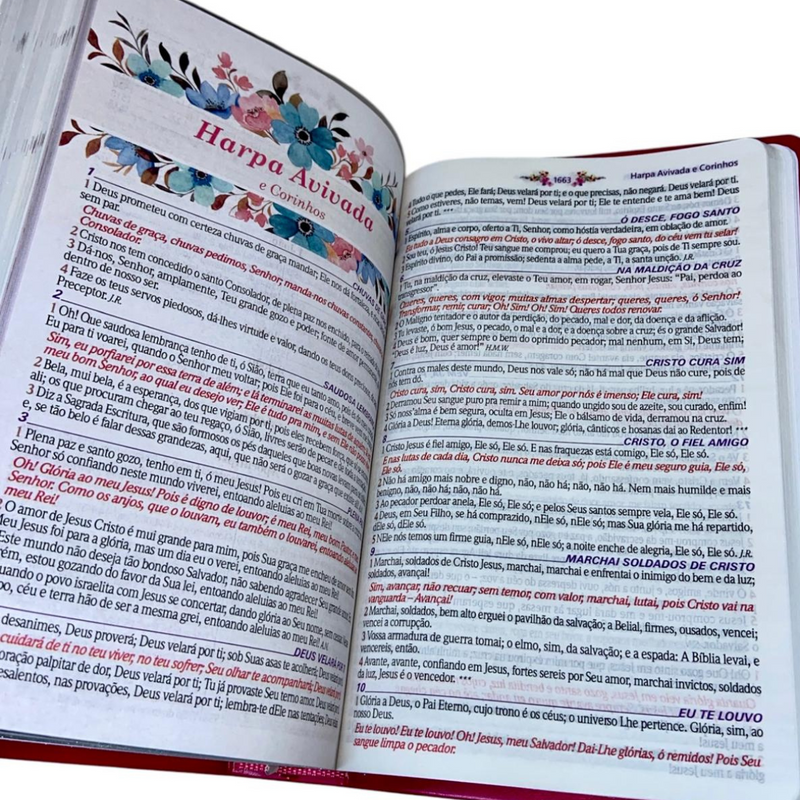 Harpa Avivada
e Corinhos
1
CHUVAS DE
1 Deus prometeu com certeza chuvas de graça mandar; Ele nos dá fortaleza,
sem par.
Chuvas de graça, chuvas pedimos, Senhor; manda-nos chuvas constantes,
Consolador.
2 Cristo nos tem concedido o santo Consolador, de plena paz nos enchido,
3 Dá-nos, Senhor, amplamente, Teu grande gozo e poder; fonte de amor
dentro de nosso ser.
4 Faze os teus servos piedosos, dá-lhes virtude e valor, dando os teus dons
Preceptor. J.R.
2
SAUDOSA
1 Oh! Que saudosa lembrança tenho de ti, ó Sião, terra que eu tanto amo,
Eu para ti voarei, quando o Senhor meu voltar; pois Ele foi para o céu, e
Sim, eu porfiarei por essa terra de além; e lá terminarei as muitas lutas
meu bom Senhor, ao qual eu desejo ver; Ele é tudo pra mim, e sem Ele não
2 Bela, mui bela, é a esperança, dos que vigiam por ti, pois eles recebem
ali; os que procuram chegar ao teu regaço, ó Sião, livres serão de pecar e de
3 Diz a Sagrada Escritura, que são formosos os pés daqueles que boas novas levam
e, se tão belo é falar dessas grandezas, aqui, que não será o gozar a graça que
3
1 Plena paz e santo gozo, tenho em ti, ó meu Jesus! Pois eu cri em Tua morte
Senhor só confiando neste mundo viverei, entoando aleluias ao meu Rei!
Oh! Glória ao meu Jesus! Pois é digno de louvor; é meu Rei, meu bom Pastor,
Senhor. Como os anjos, que o louvam, eu também o louvarei, entoando aleluias ao
meu Rei!
2 O amor de Jesus Cristo é mui grande para mim, pois Sua graça me encheu de amor
Meu Jesus foi para a glória, mas um dia eu o verei, entoando aleluias ao meu Rei!
Este mundo não deseja tão bondoso Salvador, não sabendo agradecer Seu grande
estou gozando do favor da Sua lei, entoando aleluias ao meu Rei!
quando o povo israelita com Jesus se concertar, dando glória ao Seu nome, sem cessar,
céu e terra hão de ser a mesma grei, entoando aleluias ao meu Rei!
DEUS VELARÁ POR TI
desanimes, Deus proverá; Deus velará por ti; sob Suas asas te acolherá; Deus
cuidará de ti no teu viver, no teu sofrer; Seu olhar te acompanhará; Deus velará
coração palpitar de dor, Deus velará por ti; Tu já provaste Seu terno amor. Deus velará
nas provações, Deus velará por ti; lembra-te dEle nas tentações,
1663 Harpa Avivada e Corinhos
Tudo o que pedes, Ele fará; Deus velará por ti; e o que precisas, não negará. Deus velará por ti.
Como estiveres, não temas, vem! Deus velará por ti; Ele te entende e te ama bem! Deus
velará por ti. ***
Ó DESCE, FOGO SANTO
Espírito, alma e corpo, oferto a Ti, Senhor, como hóstia verdadeira, em oblação de amor.
Eu tudo a Deus consagro em Cristo, o vivo altar; ó desce, fogo santo, do céu vem tu selar!
2 Sou teu, ó Jesus Cristo! Teu sangue me comprou; eu quero a Tua graça, pois de Ti sempre sou.
3 Espírito divino, do Pai a promissão; sedenta a alma pede, a Ti, a santa unção. J.R.
NA MALDIÇÃO DA CRUZ
Tu, na maldição da cruz, elevaste o Teu amor, em rogar, Senhor Jesus: "Pai, perdoa ao
transgressor".
Queres, queres, com vigor, muitas almas despertar; queres, queres, ó Senhor!
Transformar, remir, curar; Oh! Sim! Oh! Sim! Queres todos renovar.
2 O Maligno tentador e o autor da perdição, do pecado, mal e dor, da doença e da aflição.
Tu levaste, ó bom Jesus, o pecado, o mal e a dor, e a doença sobre a cruz; és o grande Salvador!
4 Deus é bom, quer sempre o bem do oprimido pecador; mal nenhum, em Si, Deus tem;
"Deus é luz, Deus é amor!" H.M.W.
CRISTO CURA SIM
1 Contra os males deste mundo, Deus nos vale só; não há mal que Deus não cure, pois de
nós tem dó.
Cristo cura, sim, Cristo cura, sim. Seu amor por nós é imenso; Ele cura, sim!
2 Derramou Seu sangue puro pra remir a mim; quando ungido sou de azeite, sou curado, enfim!
3 Só noss'alma é bem segura, oculta em Jesus; Ele o bálsamo de vida, derramou na cruz.
Glória a Deus! Eterna glória, demos-Lhe louvor; glória, cânticos e hosanas dai ao Redentor! ***
8
CRISTO, O FIEL AMIGO
1 Cristo Jesus é fiel amigo, Ele só, Ele só. E nas fraquezas está comigo, Ele só, Ele só.
E nas lutas de cada dia, Cristo nunca me deixa só; pois Ele é meu seguro guia, Ele só,
Ele só.
2 Não há amigo mais nobre e digno, não, não há; não, não há. Nem mais humilde e mais
benigno, não, não há; não, não há.
3 Ao pecador perdoar anela, Ele só, Ele só; e pelos Seus santos sempre vela, Ele só, Ele só.
4 Deus, em Seu Filho, se há comprazido, nEle só, nEle só; mas Sua glória me há repartido,
dEle só, dEle só.
5 NEle nós temos um firme guia, nEle só, nEle só; a noite enche de alegria, Ele só, Ele só. J.R.
9
MARCHAI SOLDADOS DE CRISTO
1 Marchai, soldados de Cristo Jesus, marchai, marchai e enfrentai o inimigo do bem e da luz;
soldados, avançai!
Sim, avançar, não recuar; sem temor, com valor, marchai, lutai, pois Cristo vai na
vanguarda – Avançai!
2 Marchai, soldados, bem alto erguei o pavilhão da salvação; a Belial, firmes, ousados, vencei;
vencei a corrupção.
3 Vossa armadura de guerra tomai; o elmo, sim, da salvação; e a espada: A Bíblia levai, e
vencereis, então.
4 Avante, avante, confiando em Jesus, fortes sereis por Seu amor, marchai invictos, soldados
da luz, Jesus é o vencedor. ***
10
EU TE LOUVO
1 Glória a Deus, o Pai Eterno, cujo trono é os céus; o universo Lhe pertence. Glória, sim, ao
nosso Deus.
Eu te louvo! Eu te louvo! Oh! Jesus, meu Salvador! Dai-Lhe glórias, ó remidos! Pois Seu
sangue limpa o pecador.